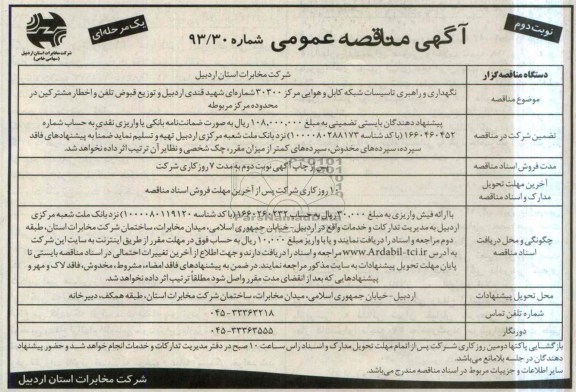 نوبت دوم
آگهی مناقصه عمومی شماره ۹۳/۳۰
یک مرحله‌ای
شرکت مخابرات استان اردبیل
(سهامی خاص)
دستگاه مناقصه گزار
شرکت مخابرات استان اردبیل
موضوع مناقصه
نگهداری و راهبری تاسیسات شبکه کابل و هوایی مرکز ۳۰۳۰۰ شماره‌ای شهید قندی اردبیل و توزیع قبوض تلفن و اخطار مشترکین در
محدوده مرکز مربوطه
تضمین شرکت در مناقصه
پیشنهاد دهندگان بایستی تضمینی به مبلغ ۱۰۸,۰۰۰,۰۰۰ ریال به صورت ضمانت‌نامه بانکی یا واریزی نقدی به حساب شماره
۱۶۶۰۴۶۰۴۵۲ (با کد شناسه ۱۰۰۰۰۰۸۰۲۸۸۱۷۳) نزد بانک ملت شعبه مرکزی اردبیل تهیه و تسلیم نماید ضمناً به پیشنهادهای فاقد
سپرده، سپرده‌های مخدوش، سپرده‌های کمتر از میزان مقرر، چک شخصی و نظایر آن ترتیب اثر داده نخواهد شد.
مدت فروش اسناد مناقصه
از چاپ آگهی نوبت دوم به مدت ۷ روز کاری شرکت
آخرین مهلت تحویل
مدارک و اسناد مناقصه
۱۰ روز کاری شرکت پس از آخرین مهلت فروش اسناد مناقصه
چگونگی و محل دریافت
اسناد مناقصه
با ارائه فیش واریزی به مبلغ ۳۰۰,۰۰۰ ریال به حساب ۱۶۶۰۲۶۰۲۳۲ (با کد شناسه ۱۰۰۰۰۰۸۰۱۱۹۱۲۰) نزد بانک ملت شعبه مرکزی
اردبیل به مدیریت تدارکات و خدمات واقع در اردبیل - خیابان جمهوری اسلامی، میدان مخابرات، ساختمان شرکت مخابرات استان، طبقه
دوم مراجعه و اسناد را دریافت نمایند و یا با واریز مبلغ ۱۰,۰۰۰ ریال به حساب فوق در مهلت مقرر از طریق اینترنت به سایت این شرکت
به آدرس www.Ardabil-tci.ir مراجعه و اسناد را دریافت دارند و جهت اطلاع از آخرین تغییرات احتمالی در اسناد مناقصه بایستی تا
پایان مهلت تحویل پیشنهادات به سایت مذکور مراجعه نمایند. در ضمن به پیشنهادهای فاقد امضاء، مشروط، مخدوش، فاقد لاک و مهر و
پیشنهادهایی که بعد از انقضای مدت مقرر واصل شود مطلقاً ترتیب اثر داده نخواهد شد.
محل تحویل پیشنهادات
اردبیل - خیابان جمهوری اسلامی، میدان مخابرات، ساختمان شرکت مخابرات استان، طبقه همکف، دبیرخانه
شماره تلفن تماس
۰۴۵-۳۳۳۶۳۲۱۸
دورنگار
۰۴۵-۳۳۳۶۳۵۵۵
بازگشایی پاکتها دومین روز کاری شرکت پس از اتمام مهلت تحویل مدارک و اسناد راس ساعت ۱۰ صبح در دفتر مدیریت تدارکات و خدمات انجام خواهد شد و حضور پیشنهاد
دهندگان در جلسه بلامانع می‌باشد.
سایر اطلاعات و جزییات مربوط در اسناد مناقصه مندرج می‌باشد.
شرکت مخابرات استان اردبیل